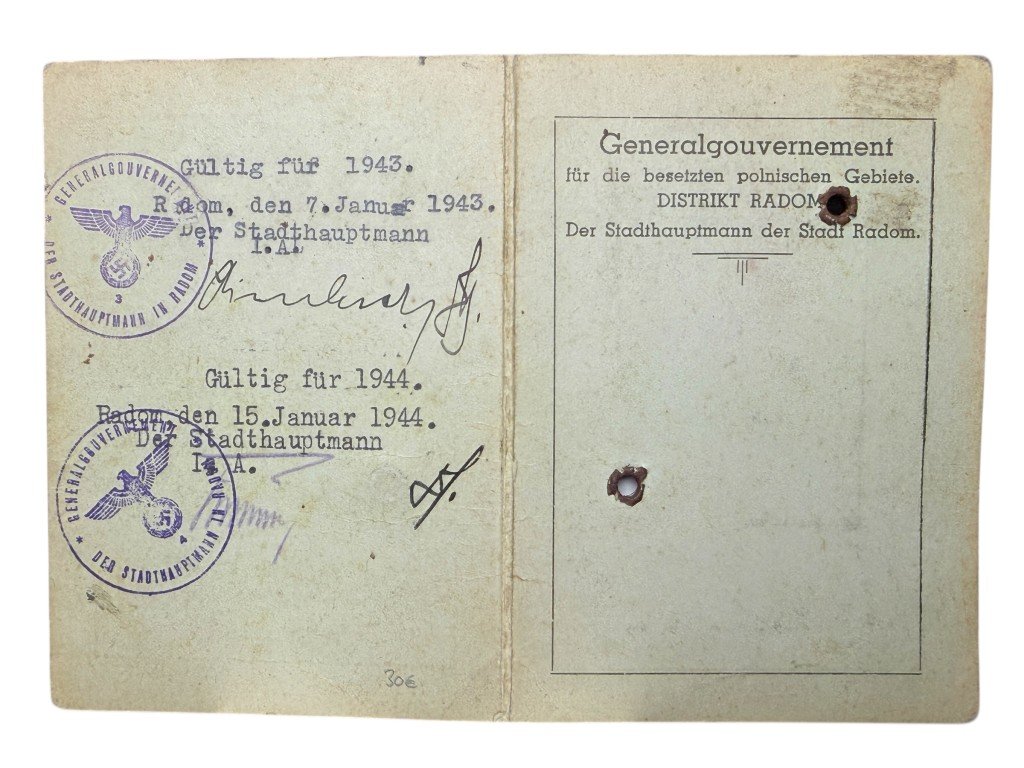 Gültig für 1943.
Radom, den 7.Januar 1943.
Der Stadthauptmann
I.A.
GENERALGOUVERNEMENT
* DER STADTHAUPTMANN IN RADOM *
3
Gültig für 1944.
Radom, den 15.Januar 1944.
Der Stadthauptmann
I. A.
GENERALGOUVERNEMENT
* DER STADTHAUPTMANN IN RADOM *
4
30€
Generalgouvernement
für die besetzten polnischen Gebiete.
DISTRIKT RADOM
Der Stadthauptmann der Stadt Radom.